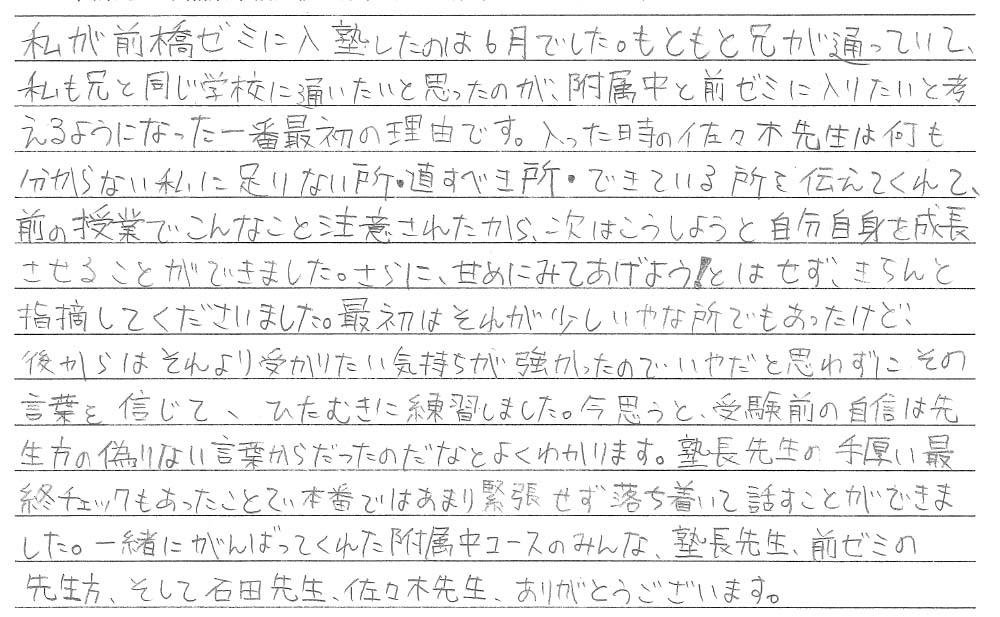 私が前橋ゼミに入塾したのは6月でした。もともと兄が通っていて、
私も兄と同じ学校に通いたいと思ったのが、附属中と前ゼミに入りたいと考
えるようになった一番最初の理由です。入った時の佐々木先生は何も
分からない私に足りない所・直すべき所・できている所を伝えてくれて、
前の授業でこんなこと注意されたから、次はこうしようと自分自身を成長
させることができました。さらに、甘めにみてあげよう!とはせず、きちんと
指摘してくださいました。最初はそれが少しいやな所でもあったけど、
後からはそれより受かりたい気持ちが強かったのでいやだと思わずに その
言葉を信じて、ひたむきに練習しました。今思うと、受験前の自信は先
生方の偽りない言葉からだったのだなとよくわかります。塾長先生の手厚い最
終チェックもあったことで、本番ではあまり緊張せず落ち着いて話すことができま
した。一緒にがんばってくれた附属中コースのみんな、塾長先生、前ゼミの
先生方、そして石田先生、佐々木先生、ありがとうございます。